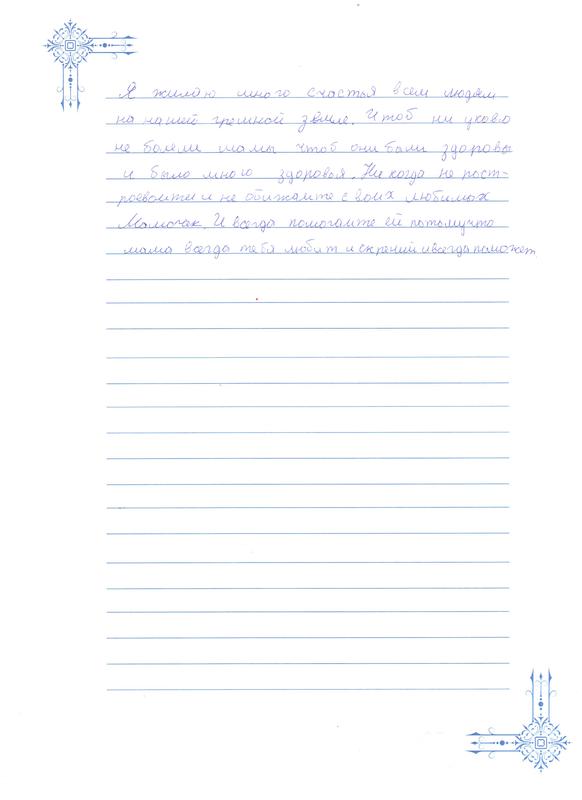 Я жилаю много счастья всем людям
на нашей грешной земле. И чтоб ни укого
не болели мамы чтоб они были здоровы
и было много здоровья. Ни когда не расст-
роеваите и не обижаите своих любимых
Мамочек. И всегда помогаите ей потомучто
мама всегда тебя любит и скрений и всегда поможет